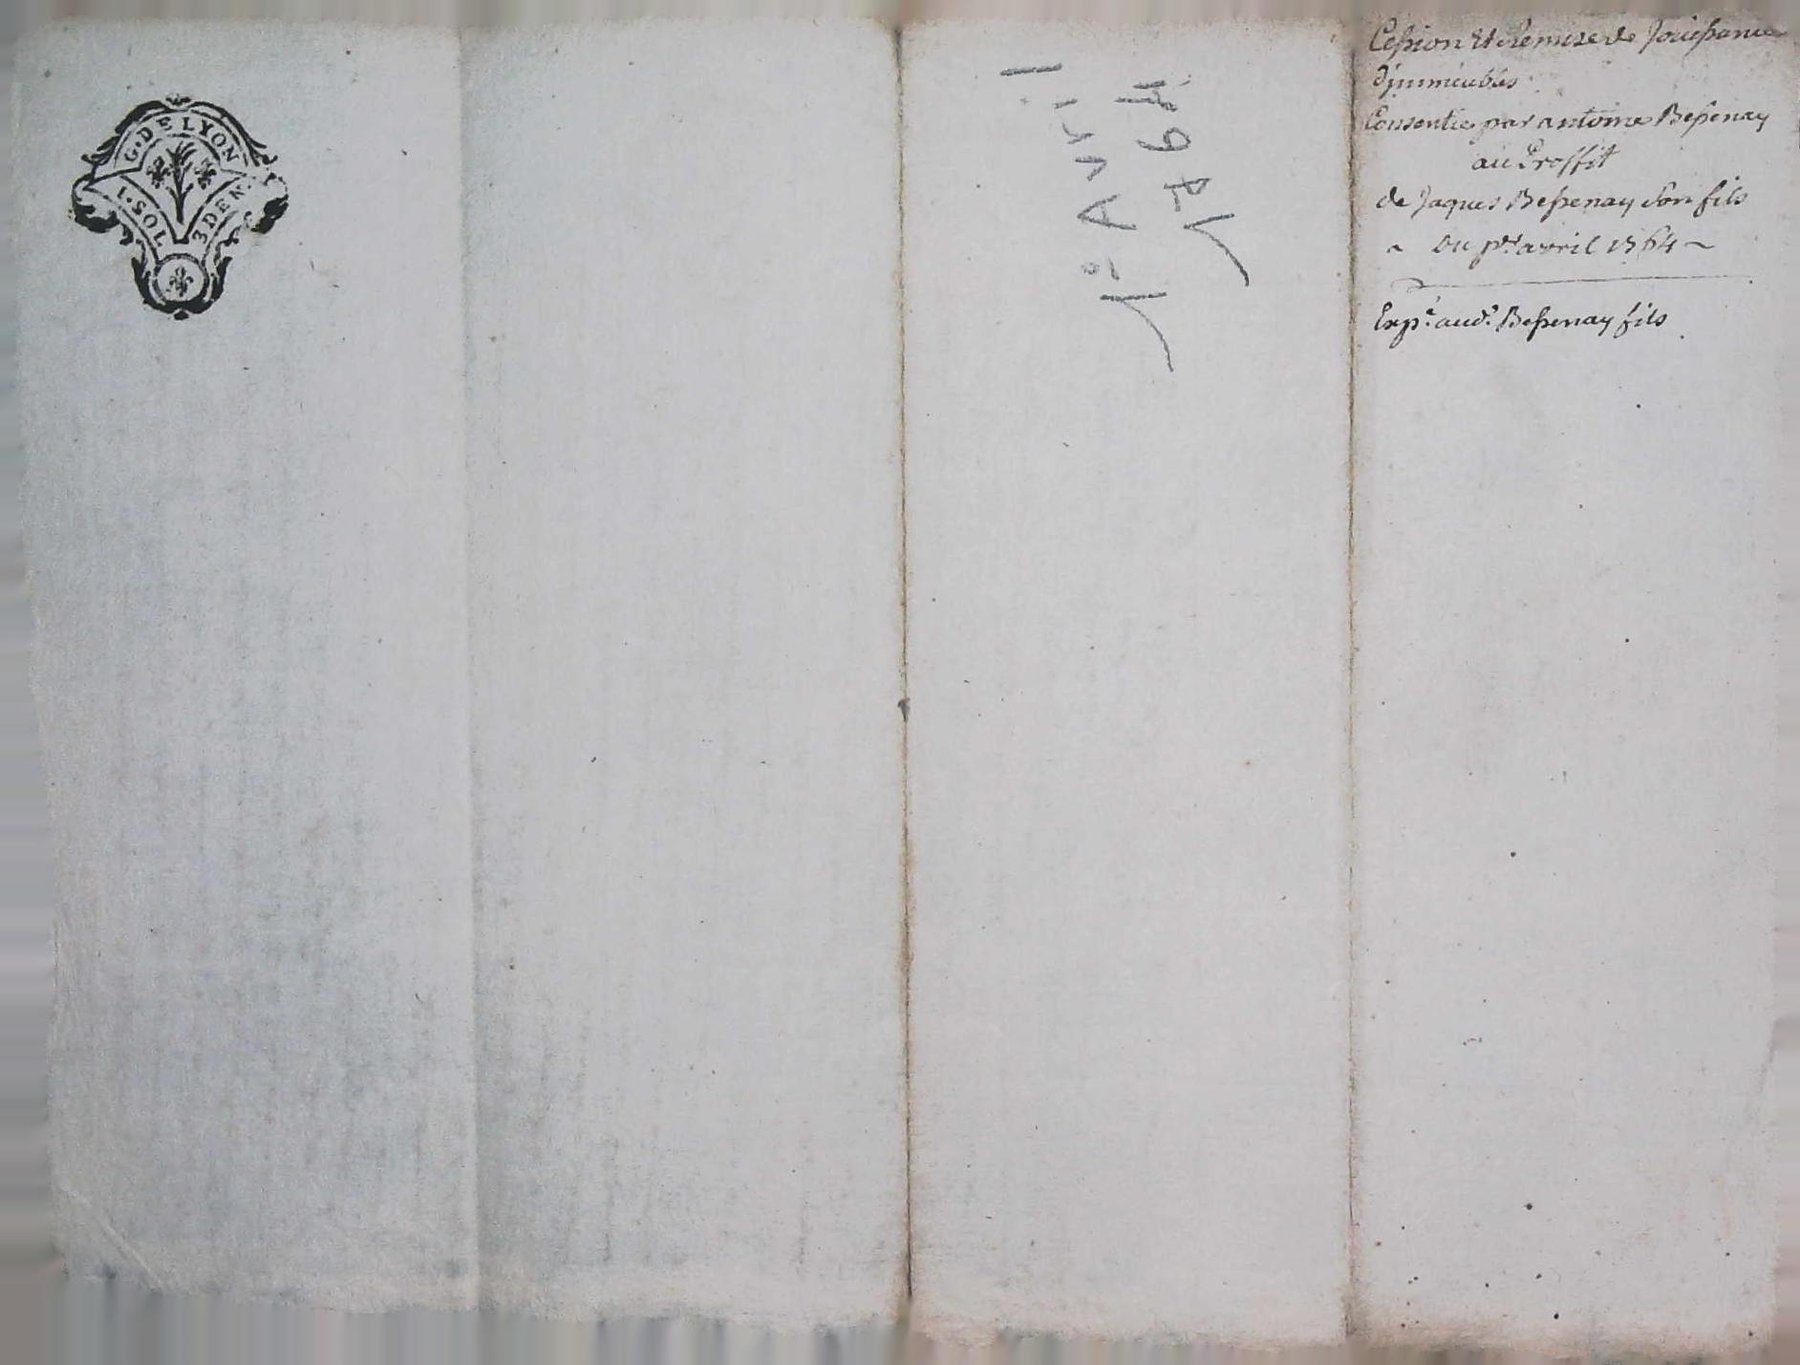 G. DE LYON
1. SOL 3 DEN.
1er Avril
1764
Cession Et Remise de Jouissance
d'jmmeubles
Consentie par antoine Bessenay
au Proffit
de Jaques Bessenay Son fils
~ Du pr. avril 1764 ~
Exp.é aud.t Bessenay fils